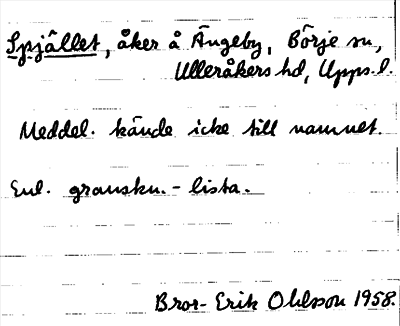 Spjället, åker å Ängeby, Börje sn,
Ulleråkers hd, Upps. l.
Meddel. kände icke till namnet.
Enl. granskn.-lista.
Bror-Erik Ohlsson 1958.